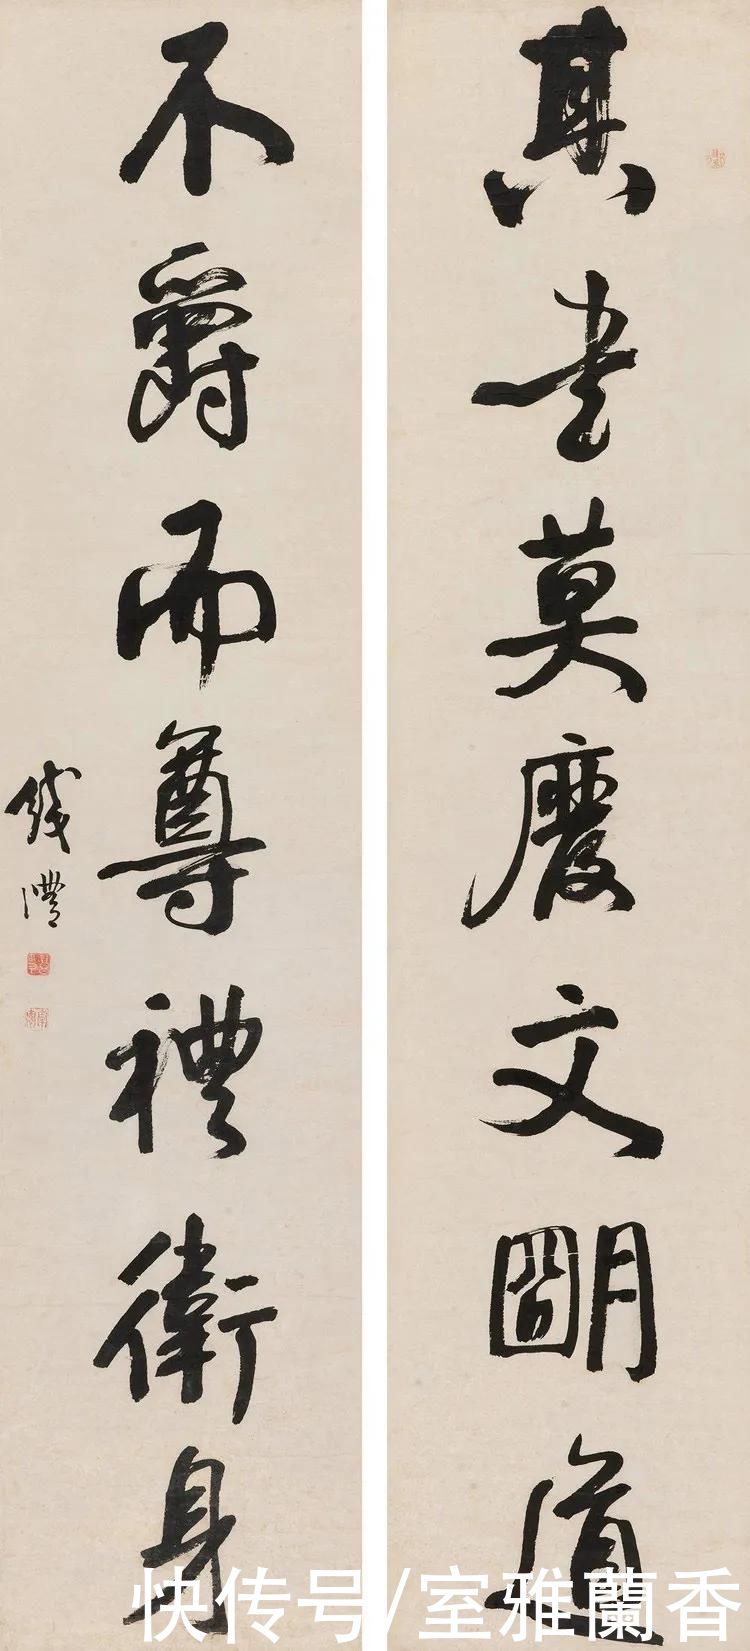 其書莫廢文朙道
不爵而尊禮衛身
錢灃
快传号/室雅蘭香